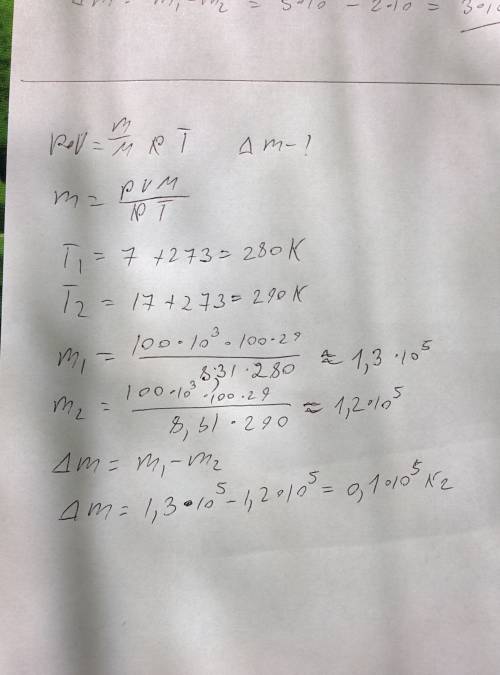 Δm = m₁-m₂ = 5·10 - 2·10 = 3·10
p·V = m/M R T Δm-?
m = pVM/RT
T₁ = 7 + 273 = 280K
T₂ = 17 + 273 = 290K
m₁ = 100·10³·100·29/8.31·280 ≈ 1,3·10⁵
m₂ = 100·10³·100·29/8,31·290 ≈ 1,2·10⁵
Δm = m₁-m₂
Δm = 1,3·10⁵-1,2·10⁵ = 0,1·10⁵ кг